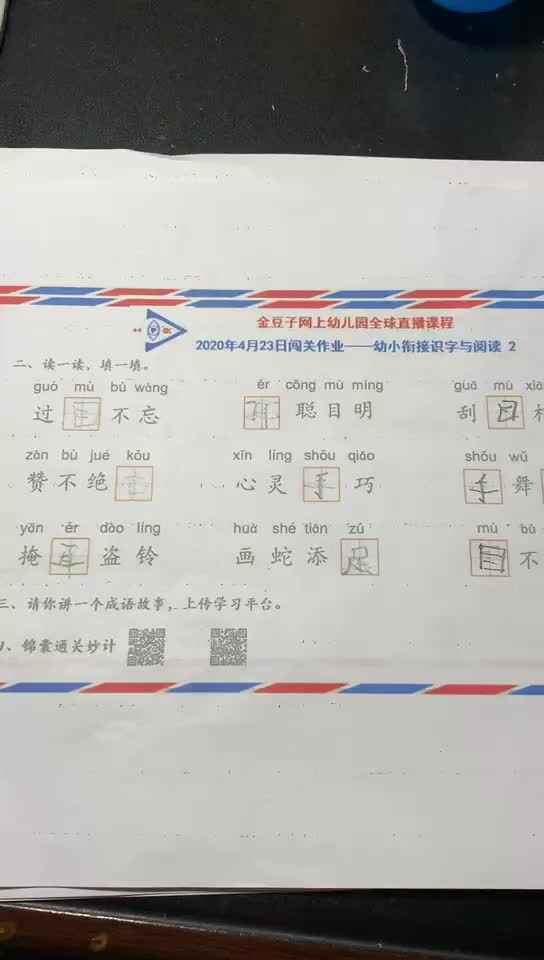 金豆子网上幼儿园全球直播课程
2020年4月23日闯关作业——幼小衔接识字与阅读 2
二、读一读，填一填。
guó mù bú wàng ěr cōng mù míng guā mù xiā
过 不忘 聪目明 刮 目
zàn bù jué kǒu xīn líng shǒu qiǎo shǒu wǔ
赞不绝 心灵 手 巧 手 舞
yǎn ěr dào líng huà shé tiān zú mù bù
掩 盗铃 画蛇添 足 目 不
三、请你讲一个成语故事，上传学习平台。
、锦囊通关妙计